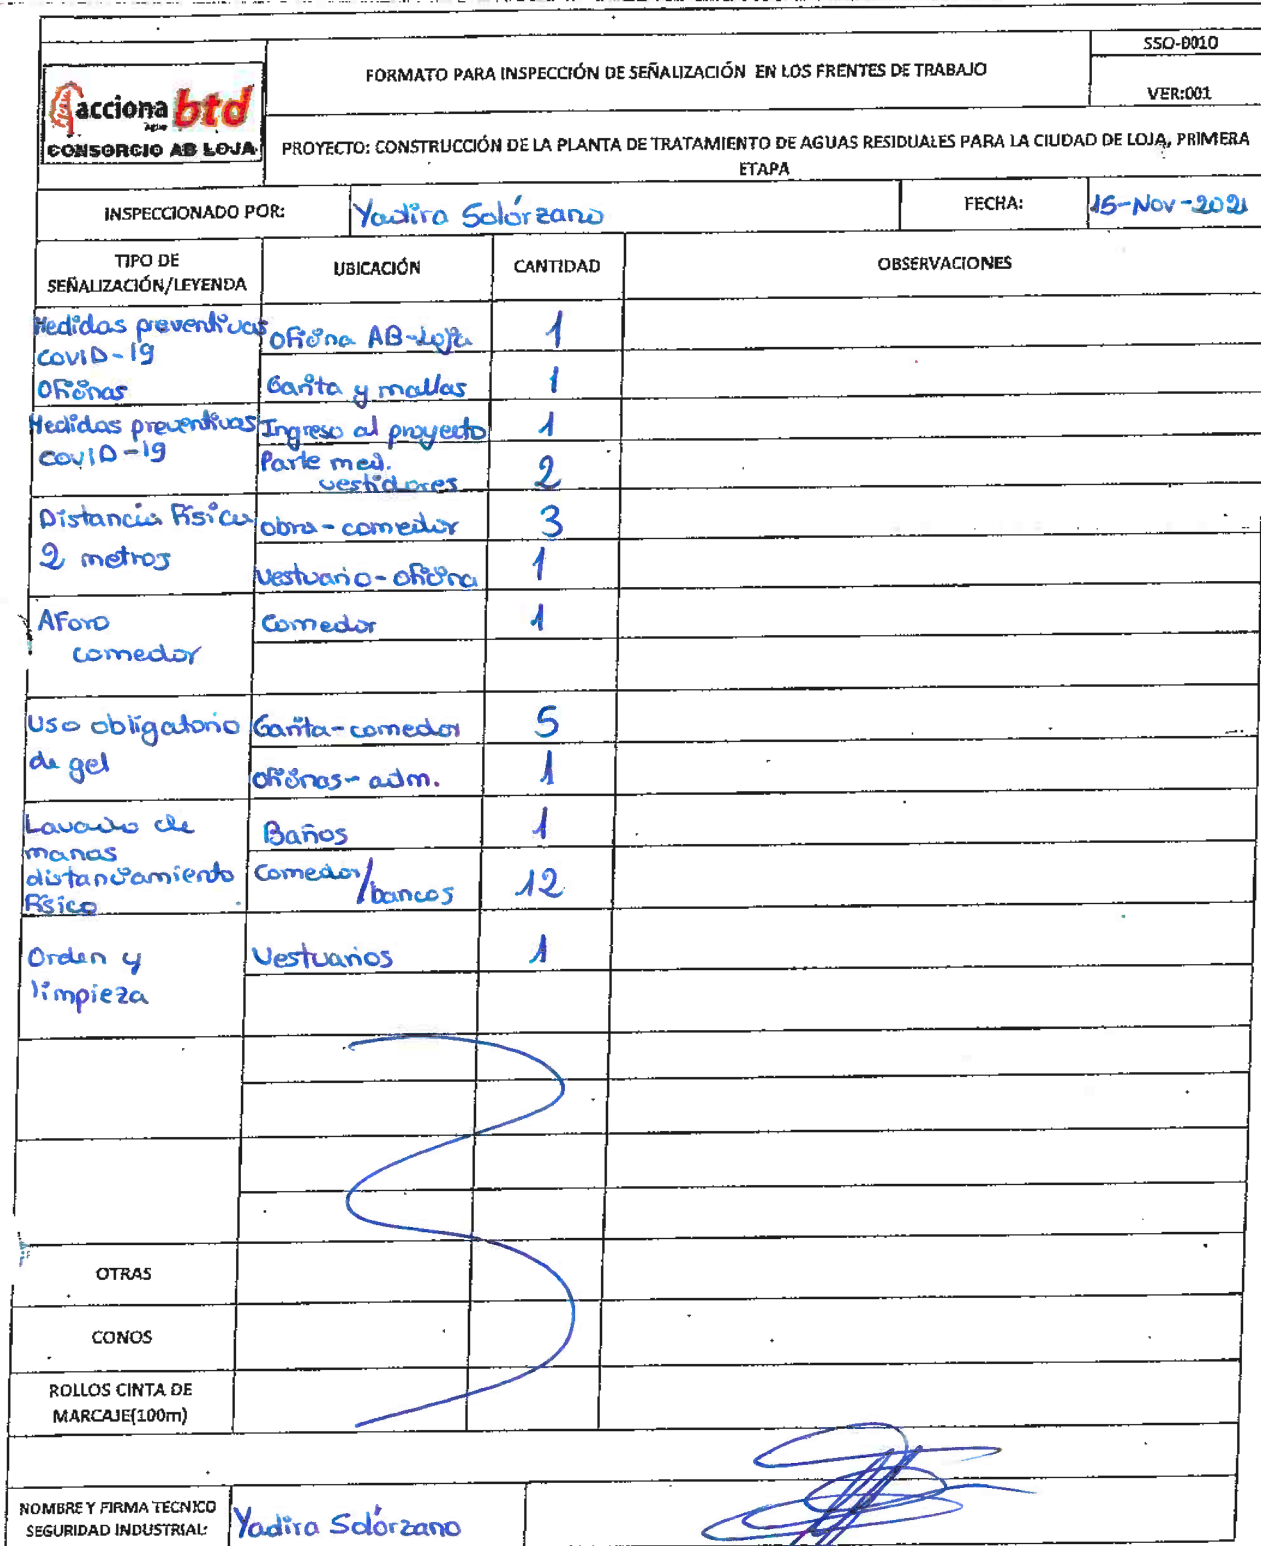 SSO-0010
FORMATO PARA INSPECCIÓN DE SEÑALIZACIÓN EN LOS FRENTES DE TRABAJO
VER:001
acciona btd
Agua
CONSORCIO AB LOJA
PROYECTO: CONSTRUCCIÓN DE LA PLANTA DE TRATAMIENTO DE AGUAS RESIDUALES PARA LA CIUDAD DE LOJA, PRIMERA
ETAPA
INSPECCIONADO POR: Yadira Solórzano FECHA: 15-Nov-2021
TIPO DE
SEÑALIZACIÓN/LEYENDA UBICACIÓN CANTIDAD OBSERVACIONES
Medidas preventivas
COVID-19
Oficinas
Oficina AB-Loja 1
Garita y mallas 1
Medidas preventivas
COVID-19
Ingreso al proyecto 1
Parte med.
vestidores 2
Distancia Física
2 metros
obra-comedor 3
Vestuario-oficina 1
AForo
comedor
Comedor 1
Uso obligatorio
de gel
Garita-comedor 5
oficinas-adm. 1
Lavado de
manos
distanciamiento
Físico
Baños 1
Comedor/
bancos 12
Orden y
limpieza
Vestuarios 1
OTRAS
CONOS
ROLLOS CINTA DE
MARCAJE(100m)
NOMBRE Y FIRMA TÉCNICO
SEGURIDAD INDUSTRIAL: Yadira Solórzano